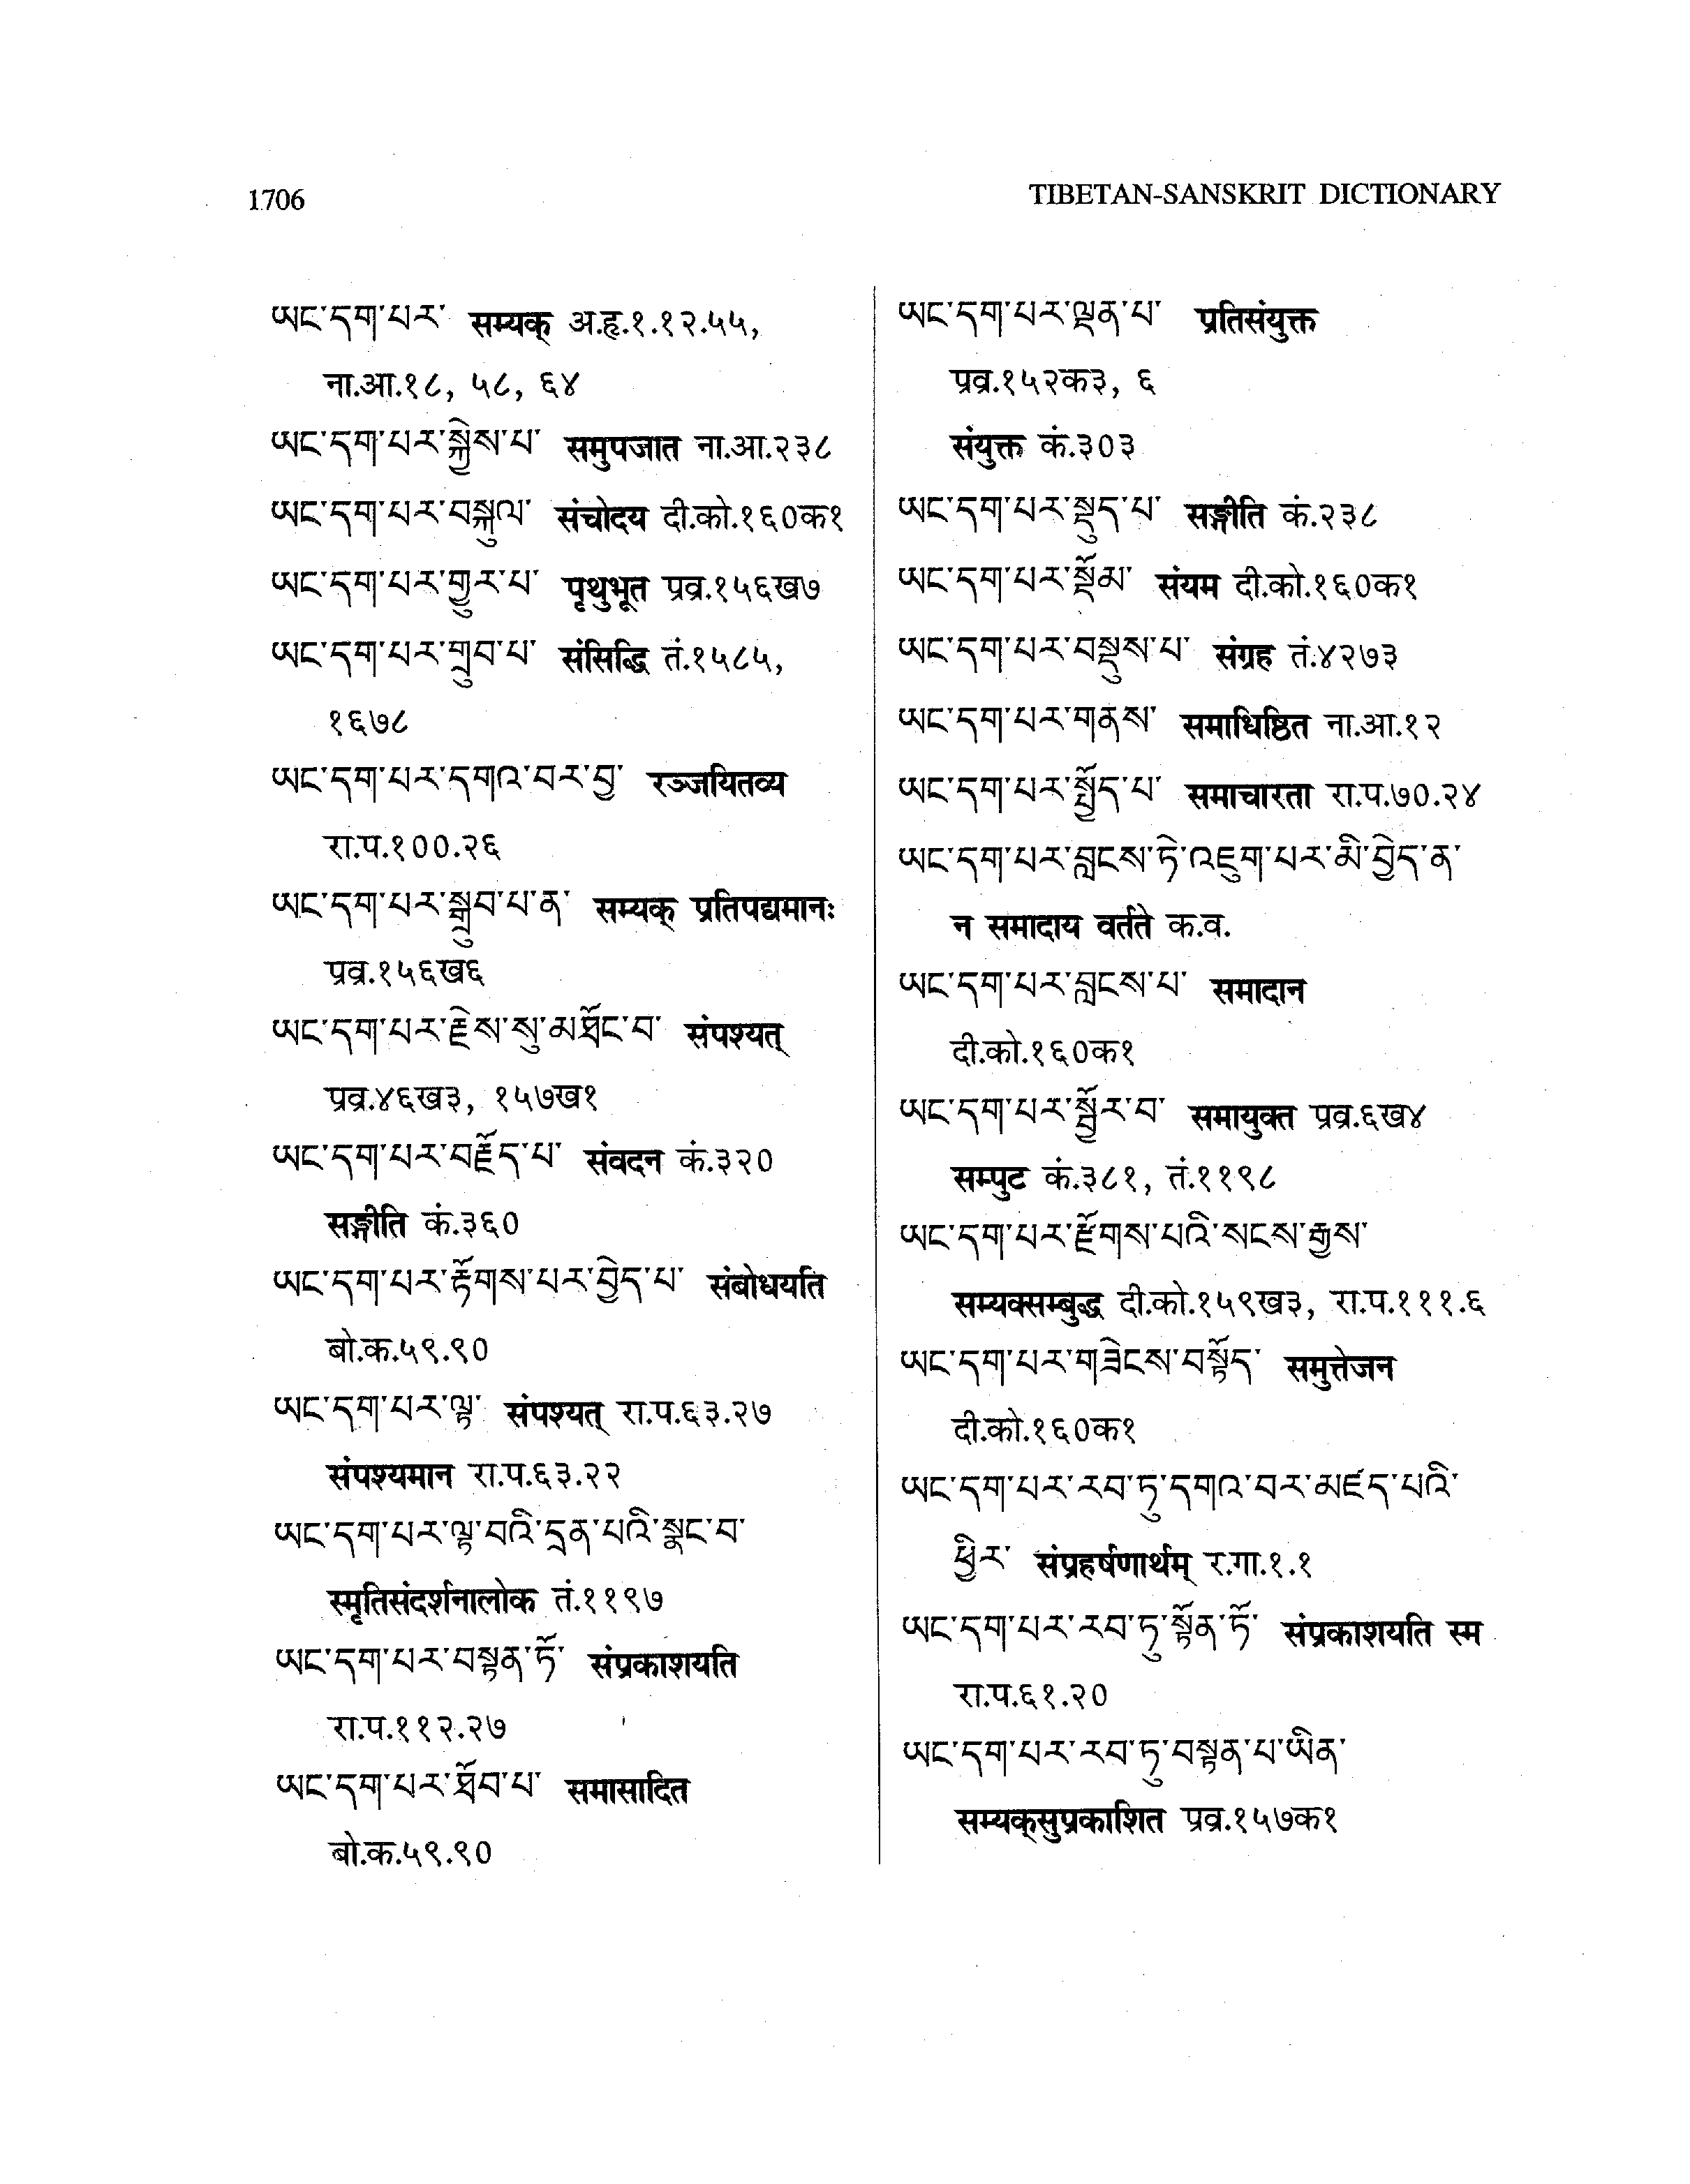 1706
TIBETAN-SANSKRIT DICTIONARY
ཡང་དག་པར་ सम्यक् अ.हृ.१.१२.५५,
ना.आ.१८, ५८, ६४
ཡང་དག་པར་སྐྱེས་པ་ समुपजात ना.आ.२३८
ཡང་དག་པར་བསྐུལ་ संचोदय दी.को.१६०क१
ཡང་དག་པར་གྱུར་པ་ पृथुभूत प्रव्र.१५६ख७
ཡང་དག་པར་གྲུབ་པ་ संसिद्धि तं.१५८५,
१६७८
ཡང་དག་པར་དགའ་བར་བྱ་ रञ्जयितव्य
रा.प.१००.२६
ཡང་དག་པར་སྒྲུབ་པ་ན་ सम्यक् प्रतिपद्यमानः
प्रव्र.१५६ख६
ཡང་དག་པར་རྗེས་སུ་མཐོང་བ་ संपश्यत्
प्रव्र.४६ख३, १५७ख१
ཡང་དག་པར་བརྗོད་པ་ संवदन कं.३२०
सङ्गीति कं.३६०
ཡང་དག་པར་རྟོགས་པར་བྱེད་པ་ संबोधयति
बो.क.५९.९०
ཡང་དག་པར་ལྟ་ संपश्यत् रा.प.६३.२७
संपश्यमान रा.प.६३.२२
ཡང་དག་པར་ལྟ་བའི་དྲན་པའི་སྣང་བ་
स्मृतिसंदर्शनालोक तं.११९७
ཡང་དག་པར་བསྟན་ཏོ་ संप्रकाशयति
रा.प.११२.२७
ཡང་དག་པར་ཐོབ་པ་ समासादित
बो.क.५९.९०
ཡང་དག་པར་ལྡན་པ་ प्रतिसंयुक्त
प्रव्र.१५२क३, ६
संयुक्त कं.३०३
ཡང་དག་པར་སྡུད་པ་ सङ्गीति कं.२३८
ཡང་དག་པར་སྡོམ་ संयम दी.को.१६०क१
ཡང་དག་པར་བསྡུས་པ་ संग्रह तं.४२७३
ཡང་དག་པར་གནས་ समाधिष्ठित ना.आ.१२
ཡང་དག་པར་སྤྱོད་པ་ समाचारता रा.प.७०.२४
ཡང་དག་པར་བླངས་ཏེ་འཇུག་པར་མི་བྱེད་ན་
न समादाय वर्तते क.व.
ཡང་དག་པར་བླངས་པ་ समादान
दी.को.१६०क१
ཡང་དག་པར་སྦྱོར་བ་ समायुक्त प्रव्र.६ख४
सम्पुट कं.३८१, तं.११९८
ཡང་དག་པར་རྫོགས་པའི་སངས་རྒྱས་
सम्यक्सम्बुद्ध दी.को.१५९ख३, रा.प.१११.६
ཡང་དག་པར་གཟེངས་བསྟོད་ समुत्तेजन
दी.को.१६०क१
ཡང་དག་པར་རབ་ཏུ་དགའ་བར་མཛད་པའི་
ཕྱིར་ संप्रहर्षणार्थम् र.गा.१.१
ཡང་དག་པར་རབ་ཏུ་སྟོན་ཏོ་ संप्रकाशयति स्म
रा.प.६१.२०
ཡང་དག་པར་རབ་ཏུ་བསྟན་པ་ཡིན་
सम्यक्सुप्रकाशित प्रव्र.१५७क१